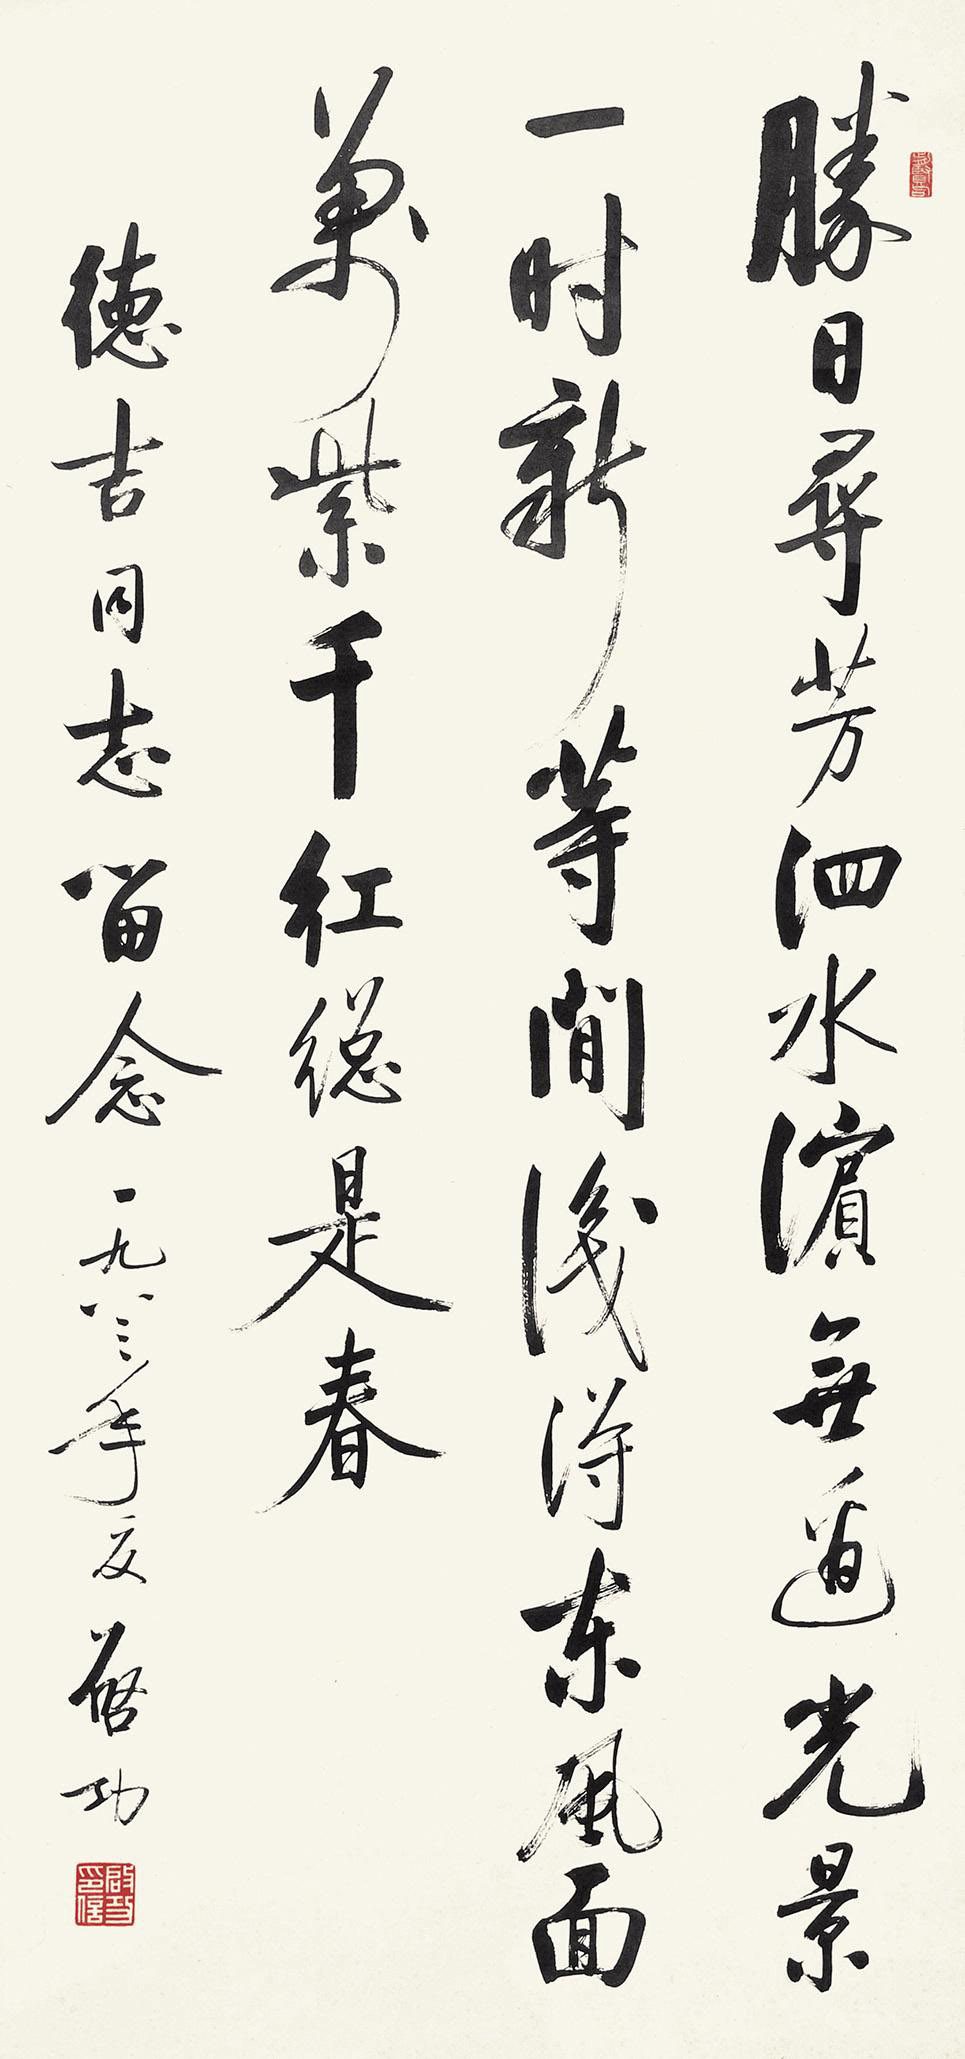 勝日尋芳泗水濱無邊光景
一时新等閒識得东風面
萬紫千红総是春
徳吉同志留念一九八三年夏启功
啟功印信